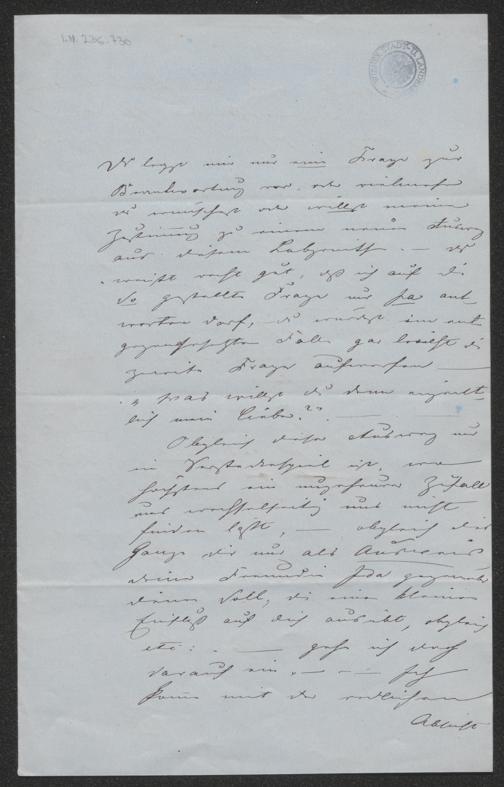 I.N. 236.730
WIENER STADT- U. LANDES
Du legst mir nur eine Frage zur
Beantwortung vor, oder vielmehr
du wünschest oder willst meine
Zustimmung zu einem neuen Ausweg
aus diesem Labyrinth. — Du
weißt recht gut, daß ich auf die
so gestellte Frage nur Ja ant
worten darf, du würdest im ent
gegengesetzten Falle gar leicht die
zweite Frage aufwerfen —
„Was willst du denn eigent
lich mein Lieber?" —
Obgleich dieser Ausweg nur
ein Versteckenspiel ist, wo
höchstens ein ungeheurer Zufall
uns wechselseitig uns nicht
finden läßt, — obgleich das
Ganze dir nur als
deine Freundin Ida gegenüber
dienen soll, die einen kleinen
Einfluß auf dich ausübt, obgleich
etc: — gehe ich doch
darauf ein. — — Ich
komme mit der redlichsten
Absicht